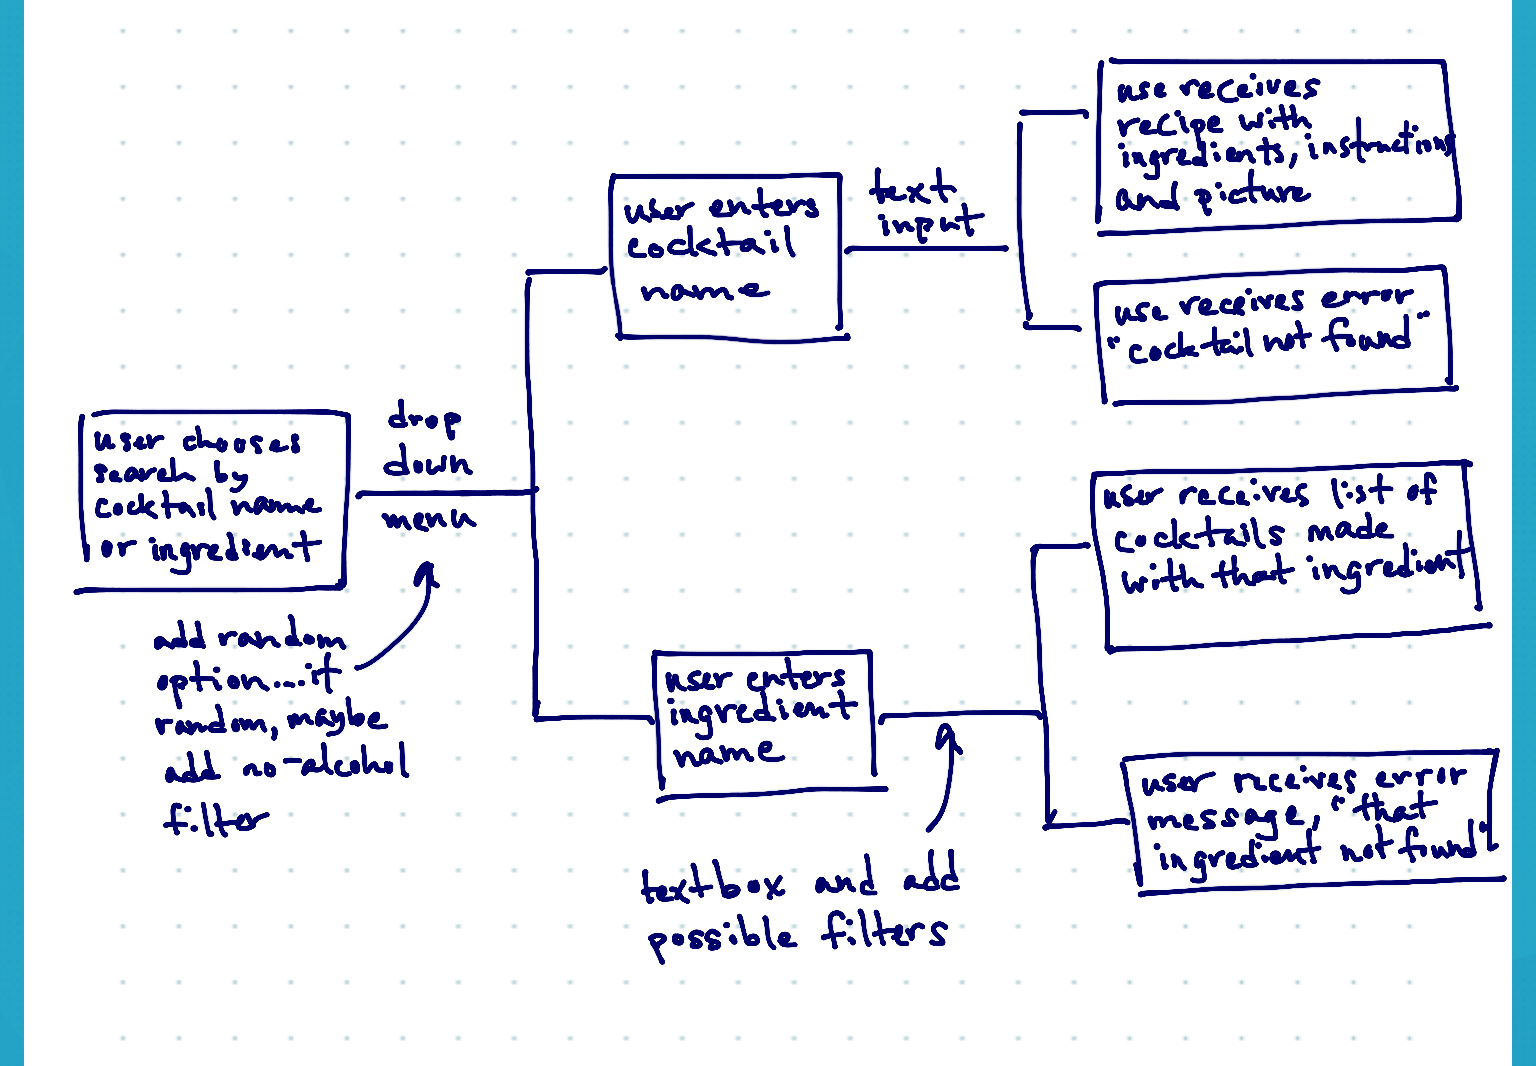 user chooses
search by
cocktail name
or ingredient
drop
down
menu
add random
option...if
random, maybe
add no-alcohol
filter
user enters
cocktail
name
text
input
use receives
recipe with
ingredients, instructions
and picture
use receives error
"cocktail not found"
user enters
ingredient
name
textbox and add
possible filters
user receives list of
cocktails made
with that ingredient
user receives error
message, "that
ingredient not found"